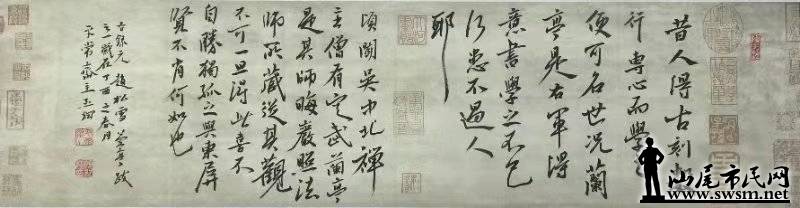 昔人得古刻數
行專心而學之
便可名世況蘭
亭是右軍得
意書學之不已
何患不過人
耶
頃聞吳中北禪
主僧有定武蘭亭
是其師晦巖照法
師所藏從其觀
不可一旦得此喜不
自勝獨孤之與東屏
賢不肖何如也
右錄元趙松雪蘭亭跋
之一歲在丁酉之春月
汕尾市民网
www.swsm.net